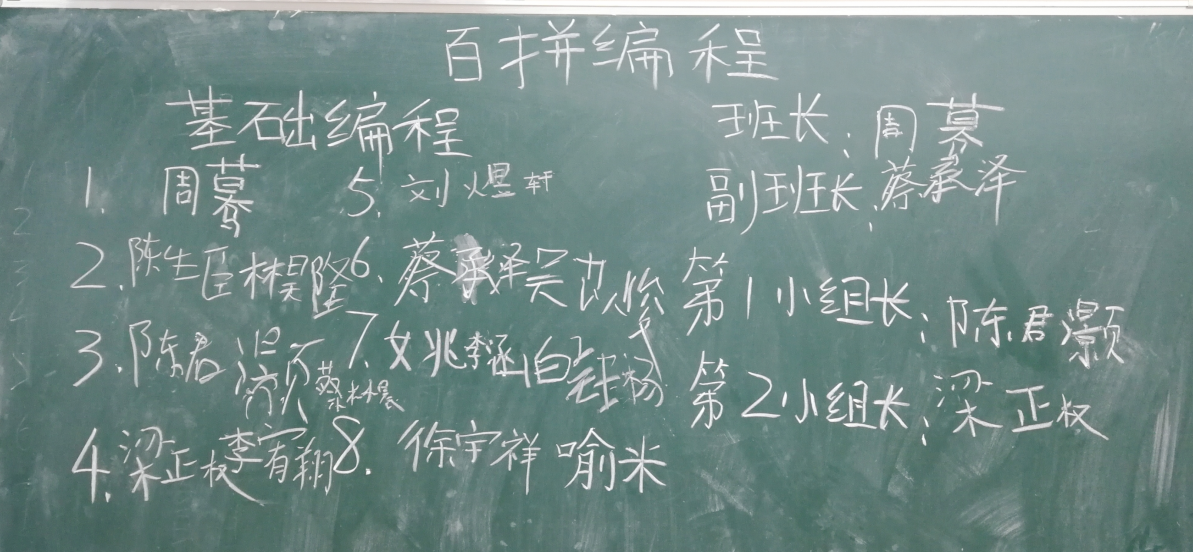 百拼编程
基础编程
班长：周
1. 周
5. 刘煜轩
副班长：蔡承泽
2. 陈生臣 林昊隆
6. 蔡承泽 吴
第1小组长：陈君灏
3. 陈君灏 蔡林
7. 姚李涵 白 杨
第2小组长：梁正权
4. 梁正权 李宥翔
8. 徐宇祥 喻米